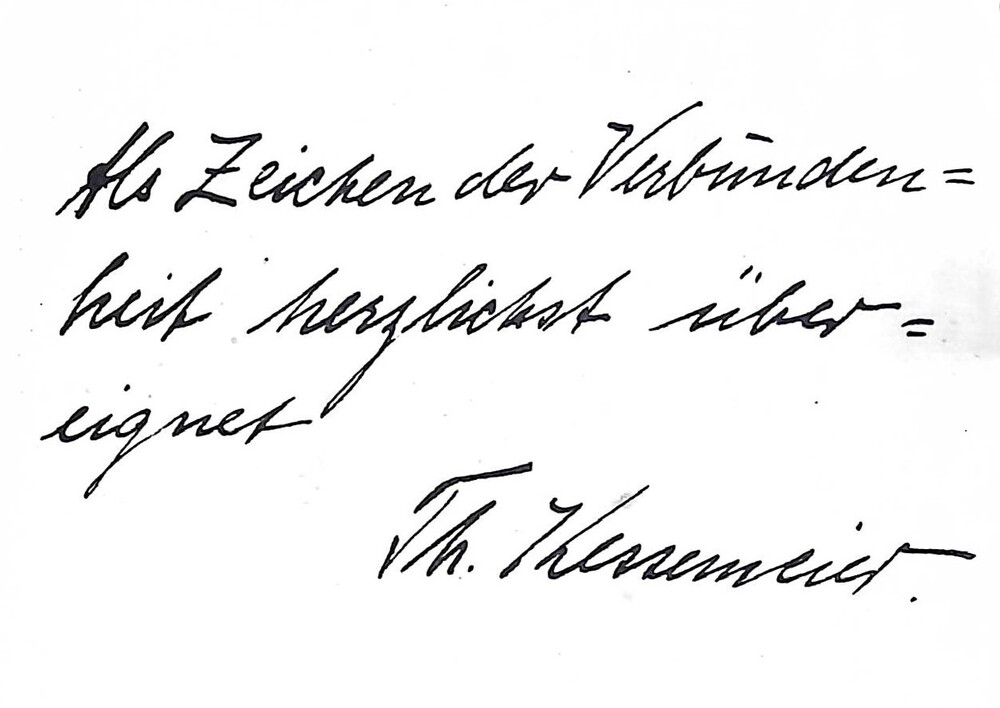 Als Zeichen der Verbunden=
heit herzlichst über=
eignet
Th. Kessemeier.